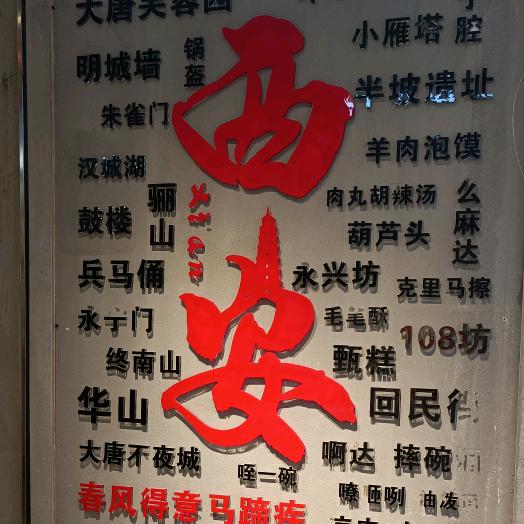 大唐芙蓉园
小雁塔
腔
明城墙
锅盔
西
半坡遗址
朱雀门
羊肉泡馍
汉城湖
骊山
xi an
肉丸胡辣汤
么麻达
鼓楼
葫芦头
兵马俑
安
永兴坊
克里马擦
永宁门
毛毛酥
108坊
终南山
甄糕
华山
回民街
大唐不夜城
咥一碗
啊达
摔碗
嘹咂咧
油泼
春风得意马蹄疾